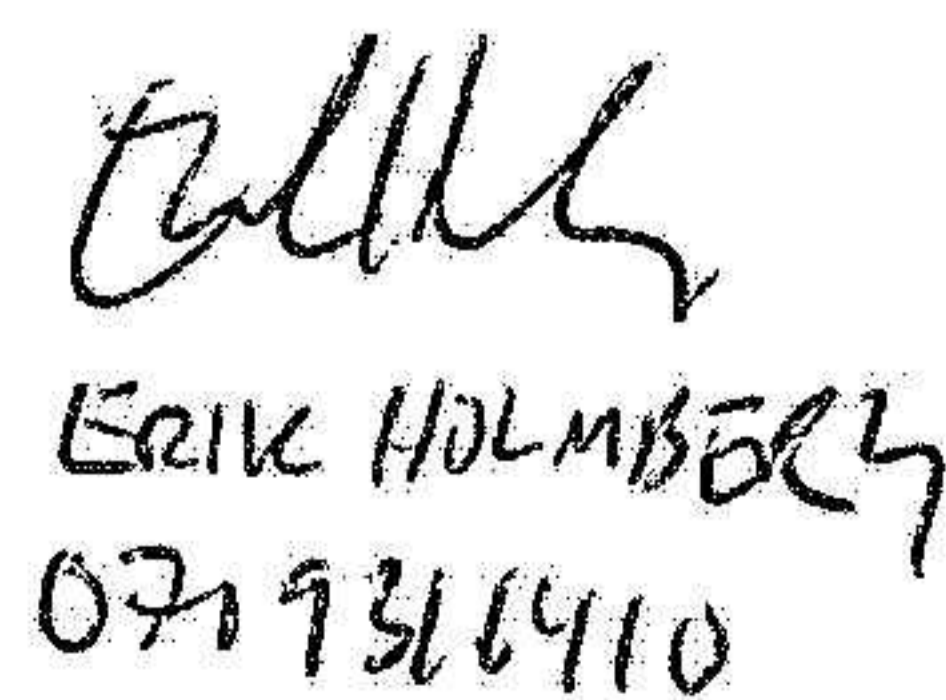 ERIK HOLMBERG
071 9316410